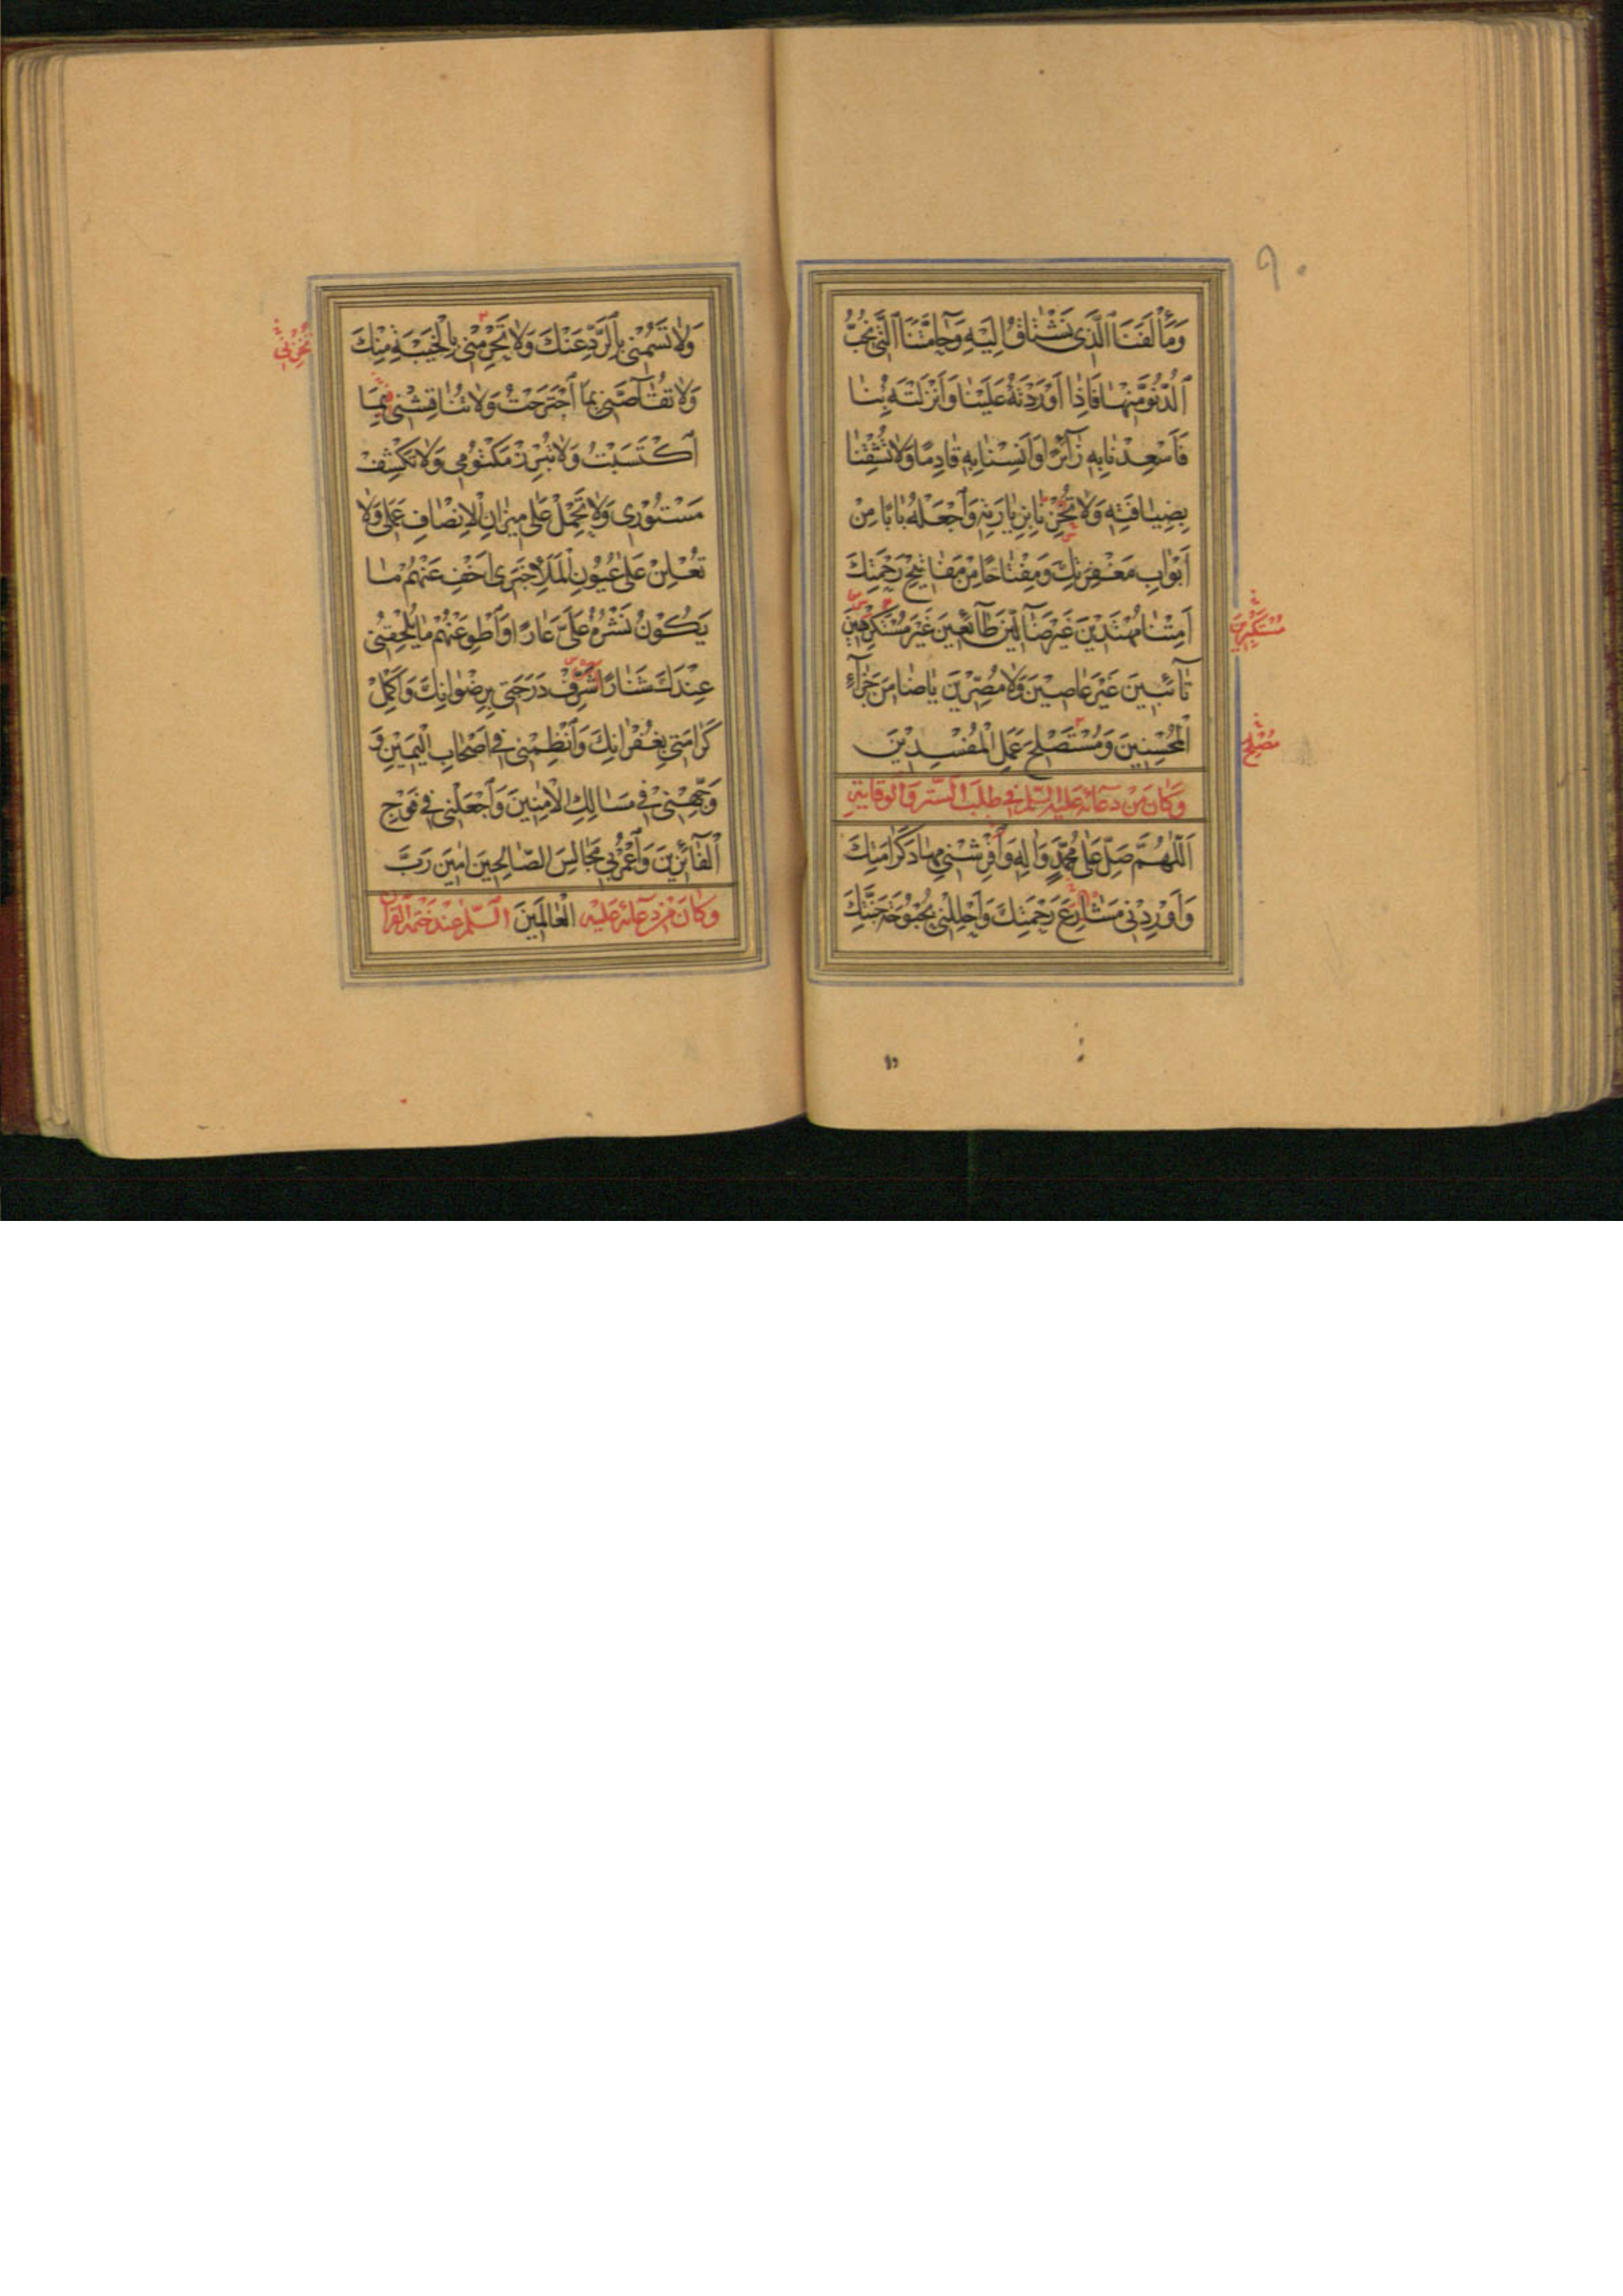 وَمَأْلَفَنَا الَّذِی نَشْتَاقُ اِلَیْهِ وَحَامَّتَنَا الَّتِی نُحِبُّ
الدُّنُوَّ مِنْهَا فَاِذَا اَوْرَدْتَهُ عَلَیْنَا وَاَنْزَلْتَهُ بِنَا
فَاَسْعِدْنَا بِهِ زَآئِرًا وَاٰنِسْنَا بِهِ قَادِمًا وَلَا تُشْقِنَا
بِضِیَافَتِهِ وَلَا تُخْزِنَا بِزِیَارَتِهِ وَاجْعَلْهُ بَابًا مِنْ
اَبْوَابِ مَغْفِرَتِكَ وَمِفْتَاحًا مِنْ مَفَاتِیحِ رَحْمَتِكَ
اَمِتْنَا مُهْتَدِیْنَ غَیْرَ ضَآلِّیْنَ طَآئِعِیْنَ غَیْرَ مُسْتَكْرِهِیْنَ
مُسْتَكْبِرِیْنَ
تَآئِبِیْنَ غَیْرَ عَاصِیْنَ وَلَا مُصِرِّیْنَ یَا ضَامِنَ جَزَآءِ
الْمُحْسِنِینَ وَمُسْتَصْلِحَ عَمَلِ الْمُفْسِدِیْنَ
مُصْلِحَ
وَكَانَ مِنْ دُعَائِهِ عَلَیْهِ السَّلٰمُ فِی طَلَبِ السِّتْرِ وَالْوِقَایَةِ
اَللّٰهُمَّ صَلِّ عَلَى مُحَمَّدٍ وَاٰلِهِ وَاَفْرِشْنِی مِهَادَ كَرَامَتِكَ
وَاَوْرِدْنِی مَشَارِعَ رَحْمَتِكَ وَاَحْلِلْنِی بُحْبُوحَةَ جَنَّتِكَ
وَلَا تَسُمْنِی بِالرَّدِّ عَنْكَ وَلَا تَحْرِمْنِی بِالْخَیْبَةِ مِنْكَ
وَلَا تُقَآصَّنِی بِمَا اجْتَرَحْتُ وَلَا تُنَاقِشْنِی بِمَا
اكْتَسَبْتُ وَلَا تُبْرِزْ مَكْتُومِی وَلَا تَكْشِفْ
مَسْتُوْرِی وَلَا تَحْمِلْ عَلٰى مِیزَانِ الْاِنْصَافِ عَمَلِی وَلَا
تُعْلِنْ عَلٰى عُیُوْنِ الْمَلَاِ خَبَرِی اَخْفِ عَنْهُمْ مَا
یَكُوْنُ نَشْرُهُ عَلَیَّ عَارًا وَاطْوِ عَنْهُمْ مَا یُلْحِقُنِی
عِنْدَكَ شَنَارًا شَرِّفْ دَرَجَتِی بِرِضْوَانِكَ وَاَكْمِلْ
كَرَامَتِی بِغُفْرَانِكَ وَانْظِمْنِی فِی اَصْحَابِ الْیَمِیْنِ وَ
وَجِّهْنِیْ فِی مَسَالِكِ الْاٰمِنِینَ وَاجْعَلْنِی فِی فَوْجِ
الْفَآئِزِینَ وَاعْمُرْ بِی مَجَالِسَ الصَّالِحِینَ اٰمِینَ رَبَّ
وَكَانَ مِنْ دُعَائِهِ عَلَیْهِ الْعَالَمِینَ السَّلٰمُ عِنْدَ خَتْمِ الْقُرْاٰنِ